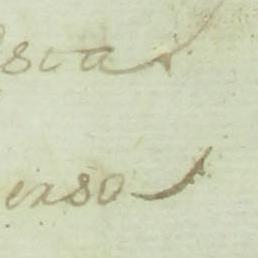 sia
erso